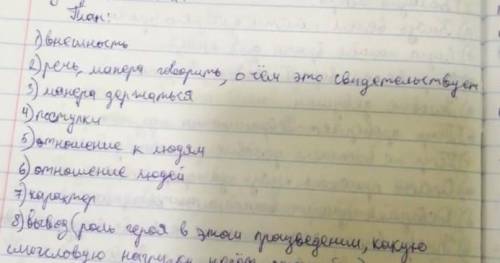 План:
1) внешность
2) речь, манера говорить, о чём это свидетельствует
3) манера держаться
4) поступки
5) отношение к людям
6) отношение людей
7) характер
8) вывод (роль героя в этом произведении, какую
смысловую